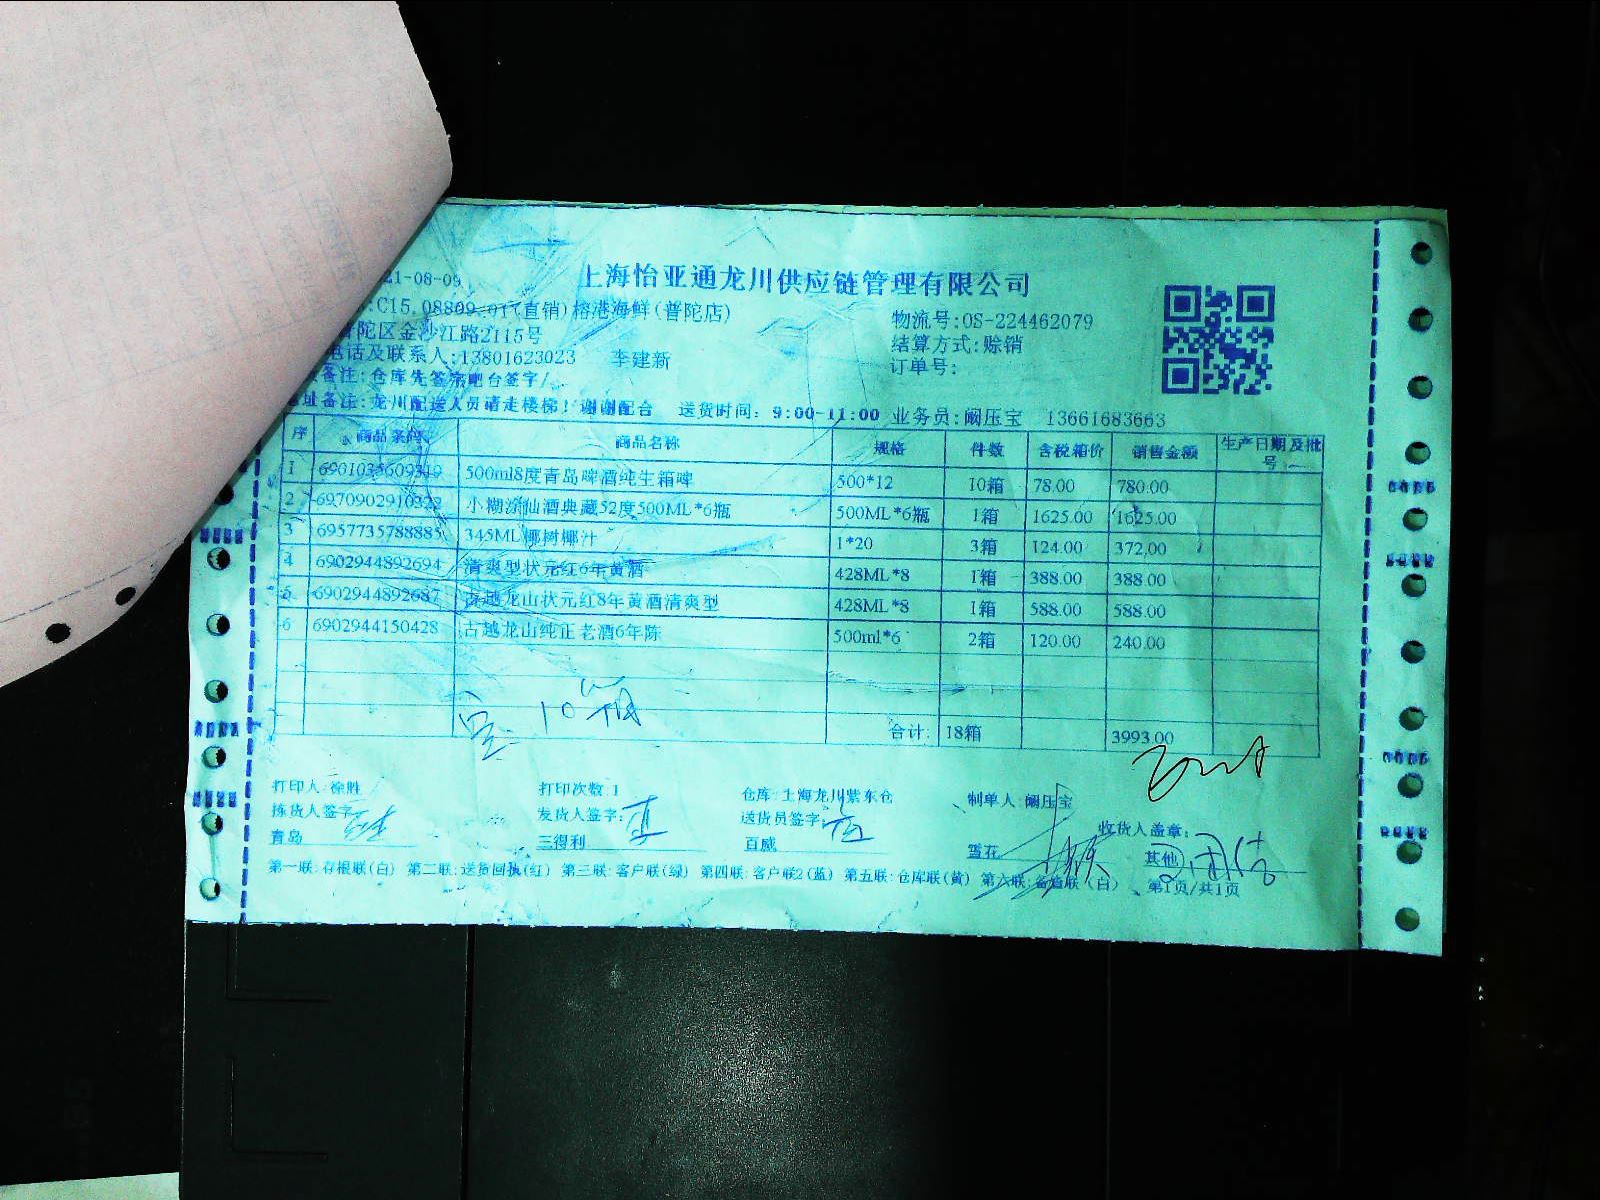 上海怡亚通龙川供应链管理有限公司
21-08-09
:C15.08809-01(直销)榕港海鲜(普陀店)
物流号:OS-224462079
普陀区金沙江路2115号
结算方式:赊销
电话及联系人:13801623023 李建新
订单号:
备注:仓库先签字吧台签字/
址备注:龙川配送人员请走楼梯!谢谢配合 送货时间: 9:00-11:00 业务员:阚压宝 13661683663
序 商品条码 商品名称 规格 件数 含税箱价 销售金额 生产日期及批号
1 6901035609319 500ml8度青岛啤酒纯生箱啤 500*12 10箱 78.00 780.00
2 小糊涂仙酒典藏52度500ML*6瓶 500ML*6瓶 1箱 1625.00 1625.00
3 6957735788885 345ML椰树椰汁 1*20 3箱 124.00 372.00
4 6902944892694 清爽型状元红6年黄酒 428ML*8 1箱 388.00 388.00
5 6902944892687 古越龙山状元红8年黄酒清爽型 428ML*8 1箱 588.00 588.00
6 6902944150428 古越龙山纯正老酒6年陈 500ml*6 2箱 120.00 240.00
10箱
合计: 18箱 3993.00
打印人:徐胜 打印次数:1 仓库:上海龙川紫东仓 制单人:阚压宝
拣货人签字: 发货人签字: 送货员签字: 收货人盖章:
青岛 三得利 百威 雪花 其他
第一联:存根联(白) 第二联:送货回执(红) 第三联:客户联(绿) 第四联:客户联2(蓝) 第五联:仓库联(黄) 第六联:备查联(白) 第1页/共1页